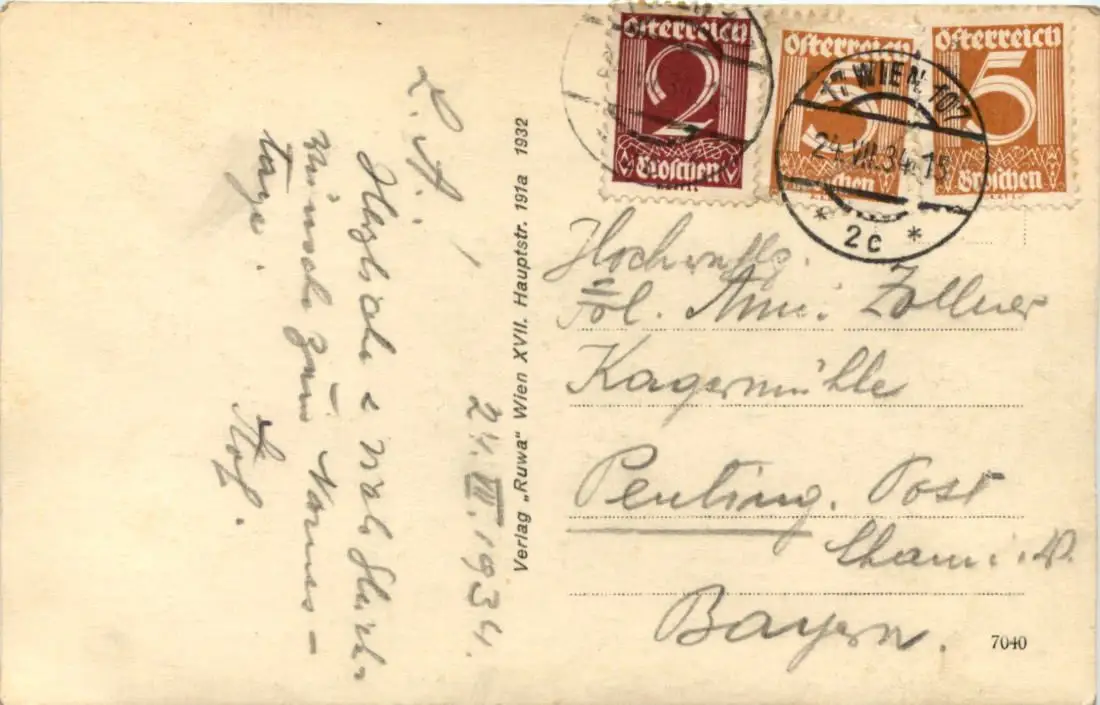 Österreich
2
Groschen
Österreich
5
Groschen
Österreich
5
Groschen
17 WIEN 107
24.VII.34.15
* 2c *
24.VII.1934.
L. A.!
Herzliche
Wünsche zum Namens-
tage.
Verlag „Ruwa“ Wien XVII. Hauptstr. 191a 1932
Hochwohlg.
Frl. Anni Zollner
Kagermühle
Penting. Post
Cham i. W.
Bayern.
7040